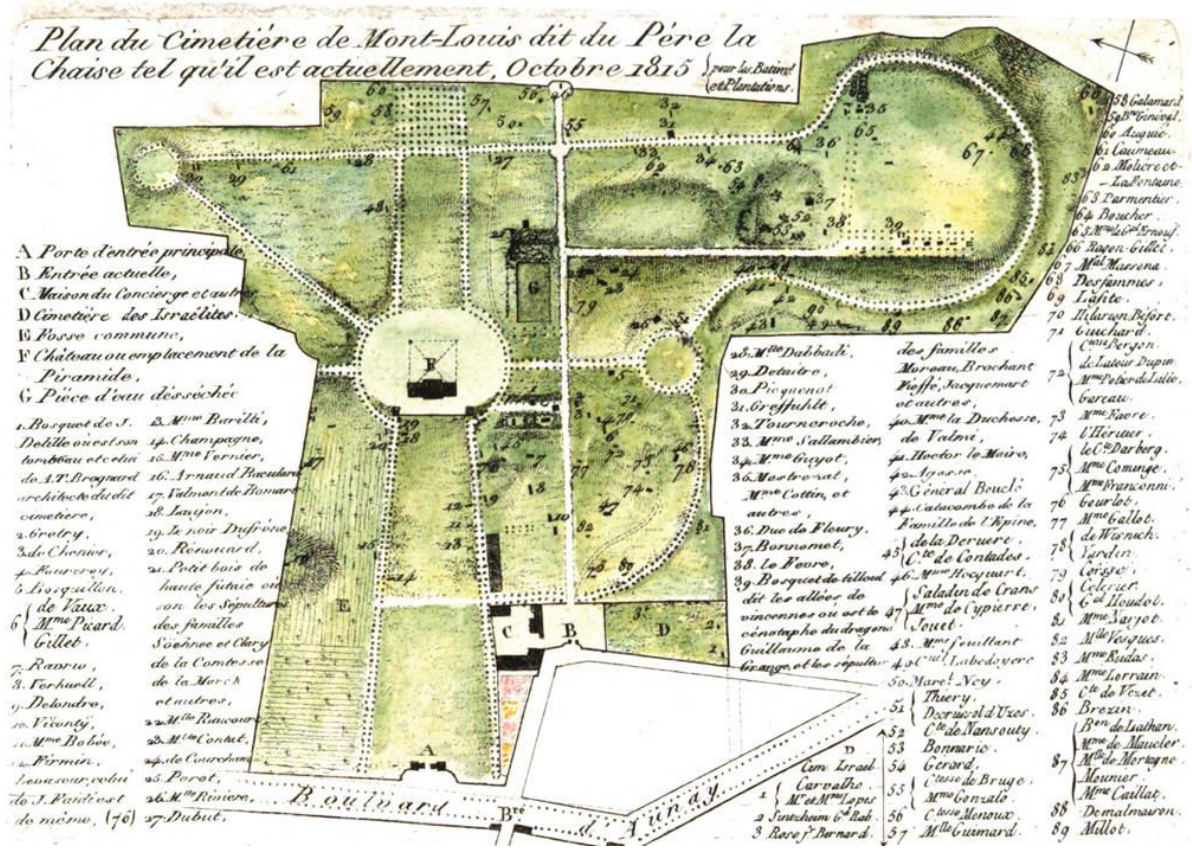 Plan du Cimetiére de Mont-Louis dit du Pére la
Chaise tel qu'il est actuellement, Octobre 1815
pour les Batimts
et Plantations.
A Porte d'entrée principale
B Entrée actuelle,
C Maison du Concierge et autre
D Cimetiére des Israélites
E Fosse commune,
F Château ou emplacement de la
Piramide,
G Piéce d'eau désséché
1. Bosquet de J.
Delille ou est son
tombeau et celui
de A.T. Brognard
architecte du dit
cimetiere,
2. Gretry,
3. de Chenier,
4. Fourcroy,
de Vaux.
6 Mme Picard.
Gillet
7. Ravrio,
8. Verhuell,
9. Delondre,
10. Viconty,
11. Mme Bobée,
Firmin,
Levasseur, celui
de J. Faidi est
de même, (76)
13. Mme Barilli,
14. Champagne,
15. Mme Vernier,
16. Arnaud Baculard
17. Valmont de Bomare
18. Laujon,
19. Le noir Dufrêne
20. Rénouard,
21. Petit bois de
haute futaie ou
son les Sépultures
des familles
Soëhnee et Clary
de la Comtesse
de la Marck
et autres,
22. Mlle Raucourt
23. Mlle Contat,
24. de Courchamp
25. Poret,
26. Mlle Riviere,
27. Dubut,
28. Mlle Dabbadi,
29. Detaitre,
30. Picquenot
31. Greffuhlt,
32. Tourneroche,
33. Mme Sallambier,
34. Mme Guyot,
36. Mestrezat,
Mme Cottin, et
autres,
36. Duc de Fleury,
37. Bonnomet,
38. le Fevre,
39. Bosquet de tilleul
dit les allées de
vincennes ou est le
cénotaphe du dragons
Guillaume de la
Grange, et les sépultur
des familles
Moreau, Brochant
Fieffé, Jacquemart
et autres,
40. Mme la Duchesse,
de Valmi,
41. Hector le Maire,
42. Agasse,
43. Général Bouclé
44. Catacombe de la
Famille de l'Epine,
45 de la Deruere
Cte de Contades.
46. Mme Hocquart.
47 Saladin de Crans
Mme de Cypierre,
Jouet.
48. Mme feuillant
49. Cnel Labedoyere
50. Marel Ney.
51 Thiery,
Decrussol d'Uzes.
52 Cte de Nansouty
53 Bonnaric.
54 Gerard,
55 Ctesse de Bruge.
Mme Gonzalo.
56 Ctesse Menoux
57 Mlle Guimard.
58 Galamard
60 Auguié.
61 Caumeau
62 Moliére et
La Fontaine.
63 Parmentier.
64 Boucher.
66 Ragon-Gillet.
67 Mal Massena.
68 Desfammes.
69 Lafite.
70 Hilarion Béfort.
71 Guichard.
72 Ctesse Bergon.
de Latour Dupin.
Gareau.
73 Mme Favre.
74 l'Héritier.
75 le Cte Darberg.
Mme Cominge.
Mme Franconni.
76 Gourlot.
77 Mme Gallot.
78 de Wisnich.
Yardin.
79 Corsse.
80 Célérier.
Gal Houdot.
81 Mme Naryot.
82 Mlle Vesques.
83 Mme Rudas.
84 Mme Lorrain.
85 Cte de Vezet.
86 Brezin.
87 Bon de Liathan.
Mme de Maucler
Mlle de Mortagne
Mounier.
Mme Caillat.
88 Demalmaison.
89 Millot.
D
Cim. Israel
1 Carvalho.
Mr et Mme Lopès
2 Sintzheim Gd Rab.
3 Rose fe Bernard.
Boulvard d'Aunay
Bre
A
B
C
D
E
F
G